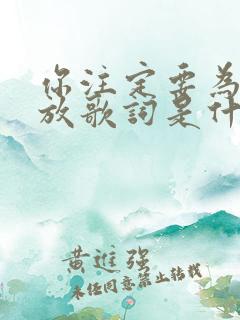 你注定要为
放歌詞是什
黄進强
未经同意禁止转载